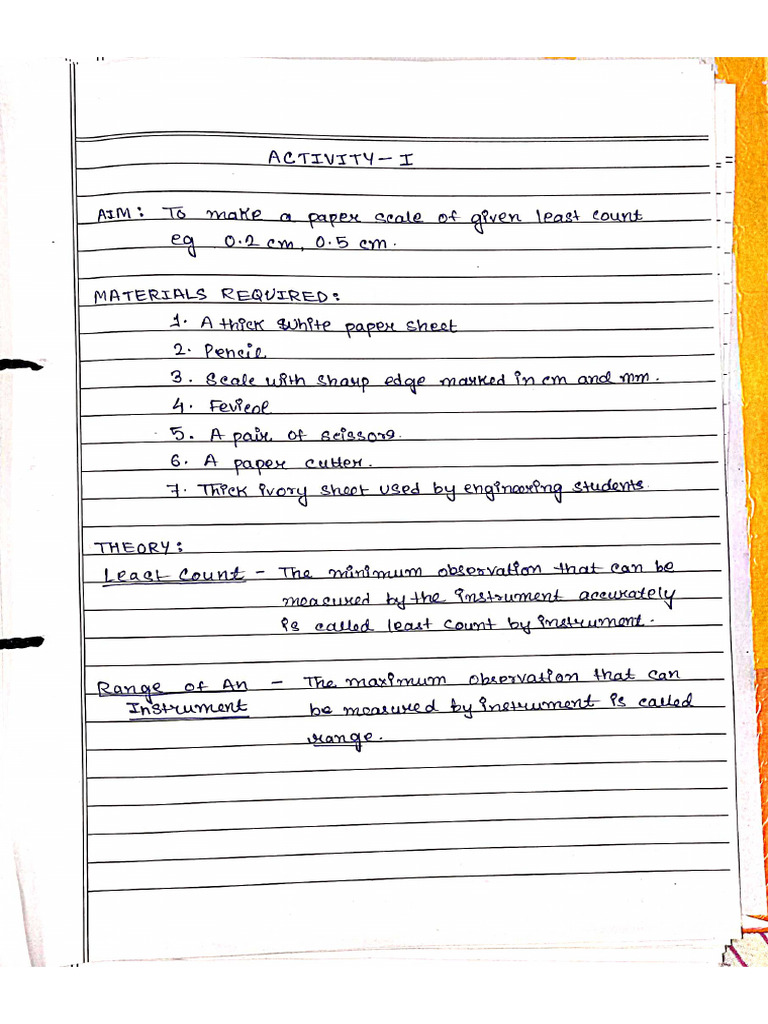 ACTIVITY - I
AIM: To make a paper scale of given least count
eg 0.2 cm, 0.5 cm.
MATERIALS REQUIRED:
1. A thick white paper sheet
2. Pencil
3. Scale with sharp edge marked in cm and mm.
4. Fevicol
5. A pair of scissors.
6. A paper cutter.
7. Thick ivory sheet used by engineering students.
THEORY:
Least Count - The minimum observation that can be
measured by the instrument accurately
is called least count by instrument.
Range of An - The maximum observation that can
Instrument be measured by instrument is called
range.